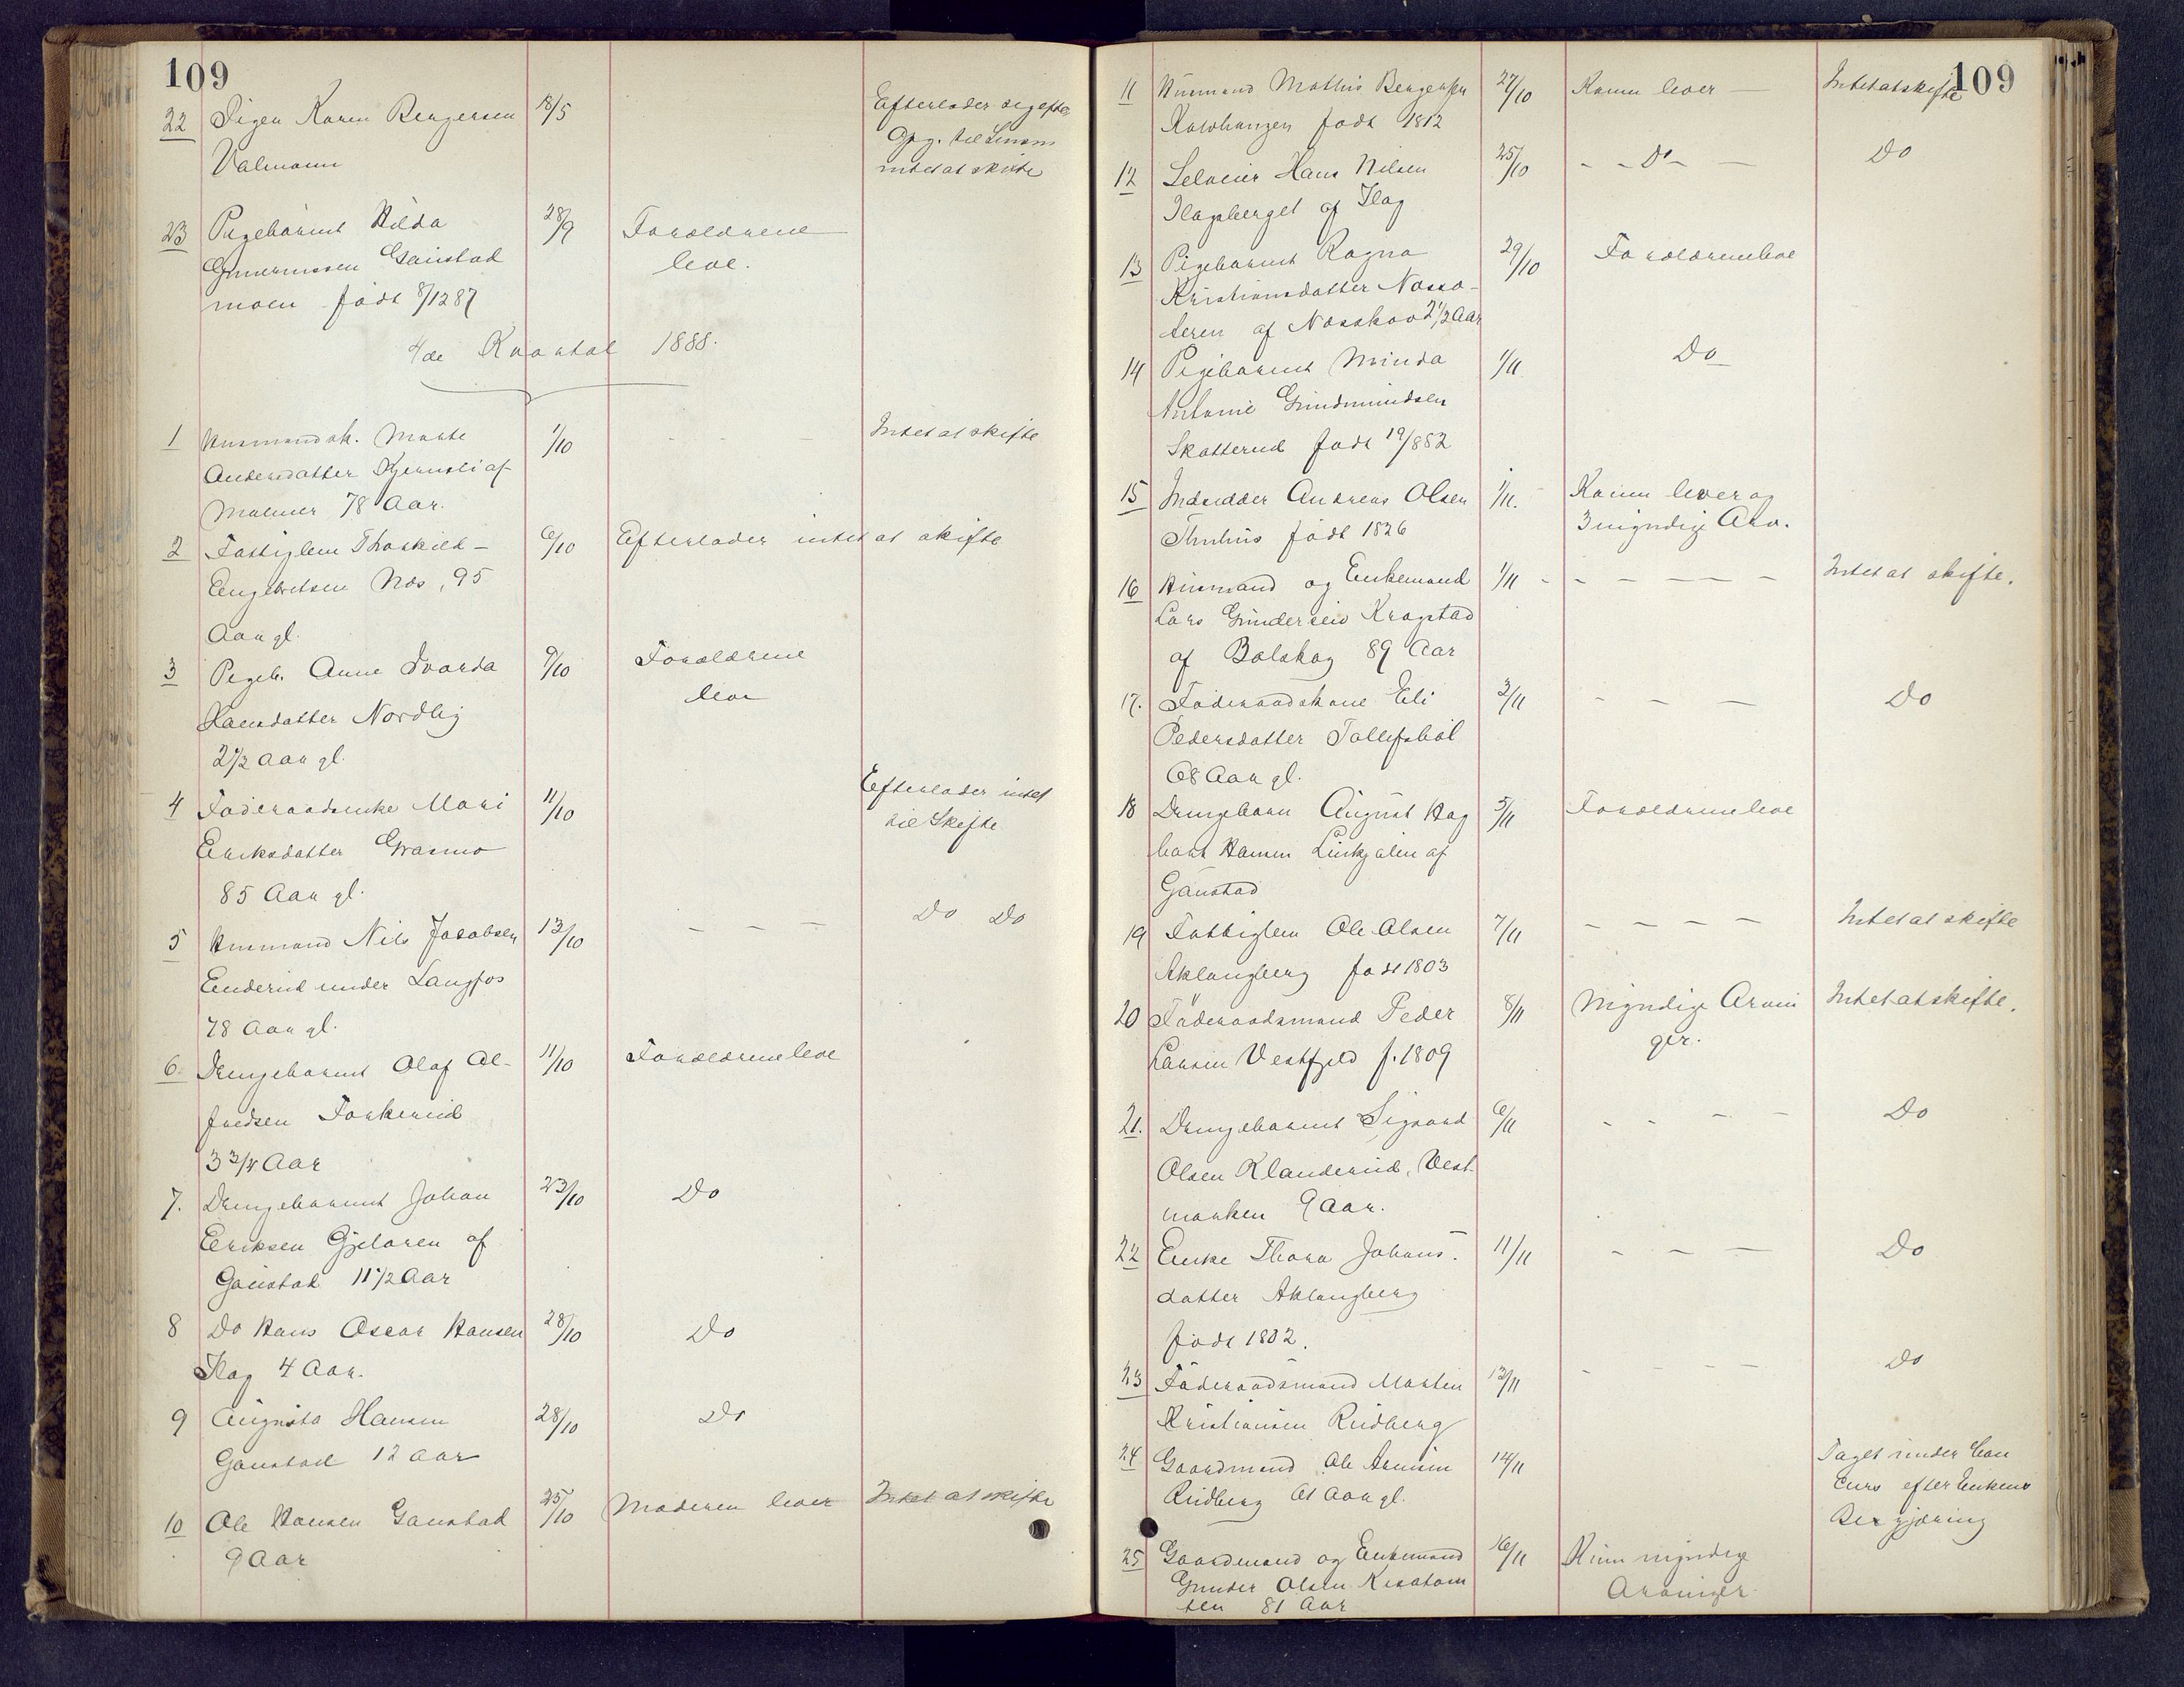 109
22 Pigen Karen Bergersen 18/5 Efterlader sig efter
Valmoen Opg. til Lensm
intet at skifte
23 Pigebarnet Hilda 28/9 Forældrene
Gunerussen Gaustad leve.
moen født 8/12 87
4de Kvartal 1888.
1 Husmandsk. Marte 1/10 - - - Intet at skifte
Andersdatter Kjernsli af
Malmer 78 Aar.
2 Fattiglem Thorkild- 6/10 Efterlader intet at skifte
Engebretsen Næs, 95
Aar gl.
3 Pigeb. Anne Svarda 9/10 Forældrene
Hansdatter Nordby leve
2 1/2 Aar gl.
4 Føderaadsenke Mari 11/10 Efterlader intet
Eriksdatter Grasmo til Skifte
85 Aar gl.
5 Husmand Nils Jacobsen 13/10 - - - Do Do
Enderud under Langfos
78 Aar gl.
6. Drengebarnet Olaf Al- 11/10 Forældrene leve
fredsen Forkerud
3 3/4 Aar
7. Drengebarnet Johan 23/10 Do
Eriksen Gjelaren af
Gaustad 11 1/2 Aar
8 Do Hans Oscar Hansen 28/10 Do
Ilag 4 Aar.
9 Augusta Hansen 28/10 Do
Gaustad 12 Aar
10 Ole Hansen Gaustad 25/10 Moderen lever Intet at skifte
9 Aar
109
11 Husmand Mathis Bergersen 27/10 Konen lever - Intet at skifte
født 1812
12 Selveier Hans Nilsen 25/10 - - Do - - Do
Ilagsberget af Ilag
13 Pigebarnet Ragna 29/10 Forældrene leve
Kristiansdatter Næssæ-
teren af Næsskov 2 1/2 Aar
14 Pigebarnet Minda 1/11 Do
Antonie Gundmundsen
Skatterud født 19/8 82
15 Indsidder Andreas Olsen 1/11. - Konen lever og
Thuhus født 1826 3 myndige Arv.
16 Husmand og Enkemand 1/11 - - - - - - Intet at skifte.
Lars Gundersen Kragstad
af Bølskog 89 Aar
17. Føderaadskone Eli 3/11 - - - Do
Pedersdatter Tollefsbøl
68 Aar gl.
18 Drengebarn August Hag 5/11 Forældrene leve
bart Hansen Linkjølen af
Gaustad
19 Fattiglem Ole Olsen 7/11 - - - - Intet at skifte
Aklangberg født 1803
20 Føderaadsmand Peder 8/11 Myndige Arvin Intet at skifte.
Larsen Vestfjeld f. 1809 ger.
21. Drengebarnet Sigvard 6/11 - - - - Do
Olsen Klanderud, Vest-
marken 9 Aar.
22 Enke Thora Johans- 11/11 - - - Do
datter Aklangberg
født 1802.
23 Føderaadsmand Morten 13/11 - - - - Do
Kristiansen Rudberg
24 Gaardmand Ole Arnesen 14/11 Taget under Con
Rudberg 61 Aar gl. curs efter Enkens
Begjæring
25 Gaardmand og Enkemand 16/11 Kun myndige
Gunder Olsen Arvinger
ten 81 Aar